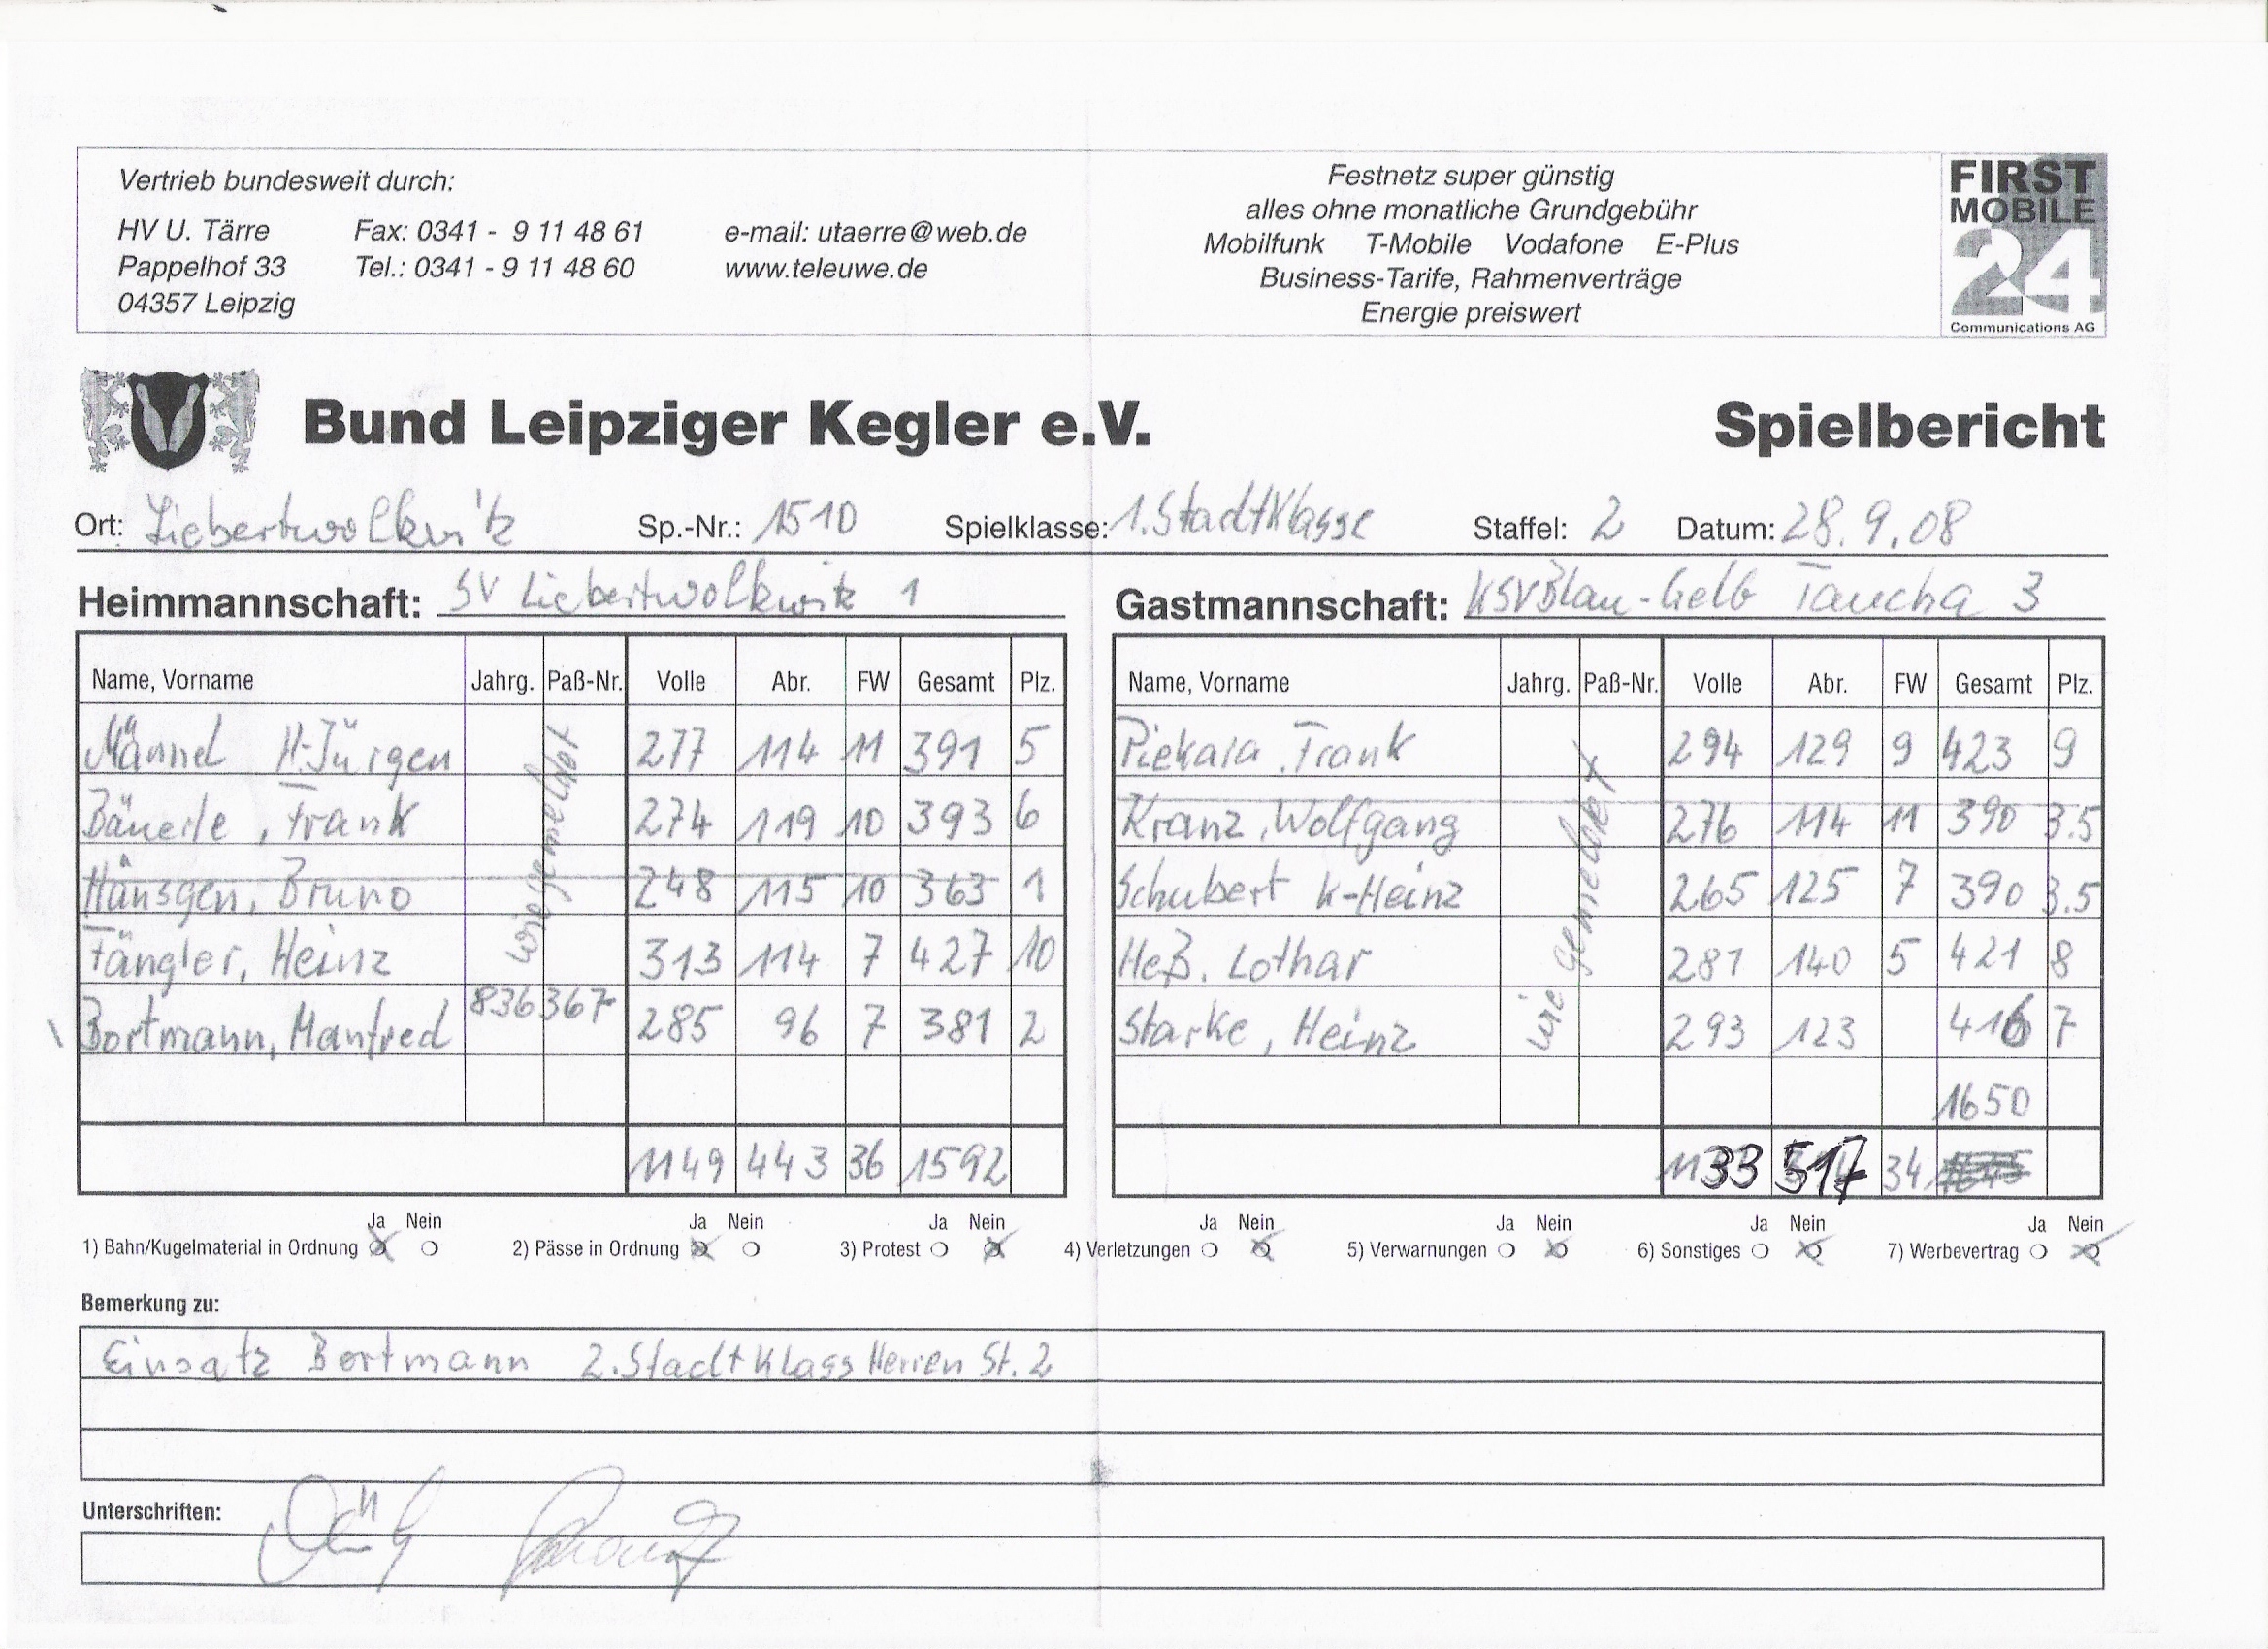 Vertrieb bundesweit durch:
HV U. Tärre Fax: 0341 - 9 11 48 61 e-mail: utaerre@web.de
Pappelhof 33 Tel.: 0341 - 9 11 48 60 www.teleuwe.de
04357 Leipzig
Festnetz super günstig
alles ohne monatliche Grundgebühr
Mobilfunk T-Mobile Vodafone E-Plus
Business-Tarife, Rahmenverträge
Energie preiswert
FIRST
MOBILE
24
Communications AG
Bund Leipziger Kegler e.V. Spielbericht
Ort: Liebertwolkwitz Sp.-Nr.: 1510 Spielklasse: 1. Stadtklasse Staffel: 2 Datum: 28.9.08
Heimmannschaft: SV Liebertwolkwitz 1
Name, Vorname Jahrg. Paß-Nr. Volle Abr. FW Gesamt Plz.
wie gemeldet
Männel H-Jürgen 277 114 11 391 5
Bäuerle, Frank 274 119 10 393 6
Hänsgen, Bruno 248 115 10 363 1
Fängler, Heinz 313 114 7 427 10
Bortmann, Manfred 836 367 285 96 7 381 2
1149 443 36 1592
Gastmannschaft: KSV Blau-Gelb Taucha 3
Name, Vorname Jahrg. Paß-Nr. Volle Abr. FW Gesamt Plz.
wie gemeldet
Piekara, Frank 294 129 9 423 9
Kranz, Wolfgang 276 114 11 390 3.5
Schubert K-Heinz 265 125 7 390 3.5
Heß. Lothar 281 140 5 421 8
Starke, Heinz 293 123 416 7
1650
1133 517 34
Ja Nein Ja Nein Ja Nein Ja Nein Ja Nein Ja Nein Ja Nein
1) Bahn/Kugelmaterial in Ordnung 2) Pässe in Ordnung 3) Protest 4) Verletzungen 5) Verwarnungen 6) Sonstiges 7) Werbevertrag
Bemerkung zu:
Einsatz Bortmann 2. Stadtklass Herren St. 2
Unterschriften: